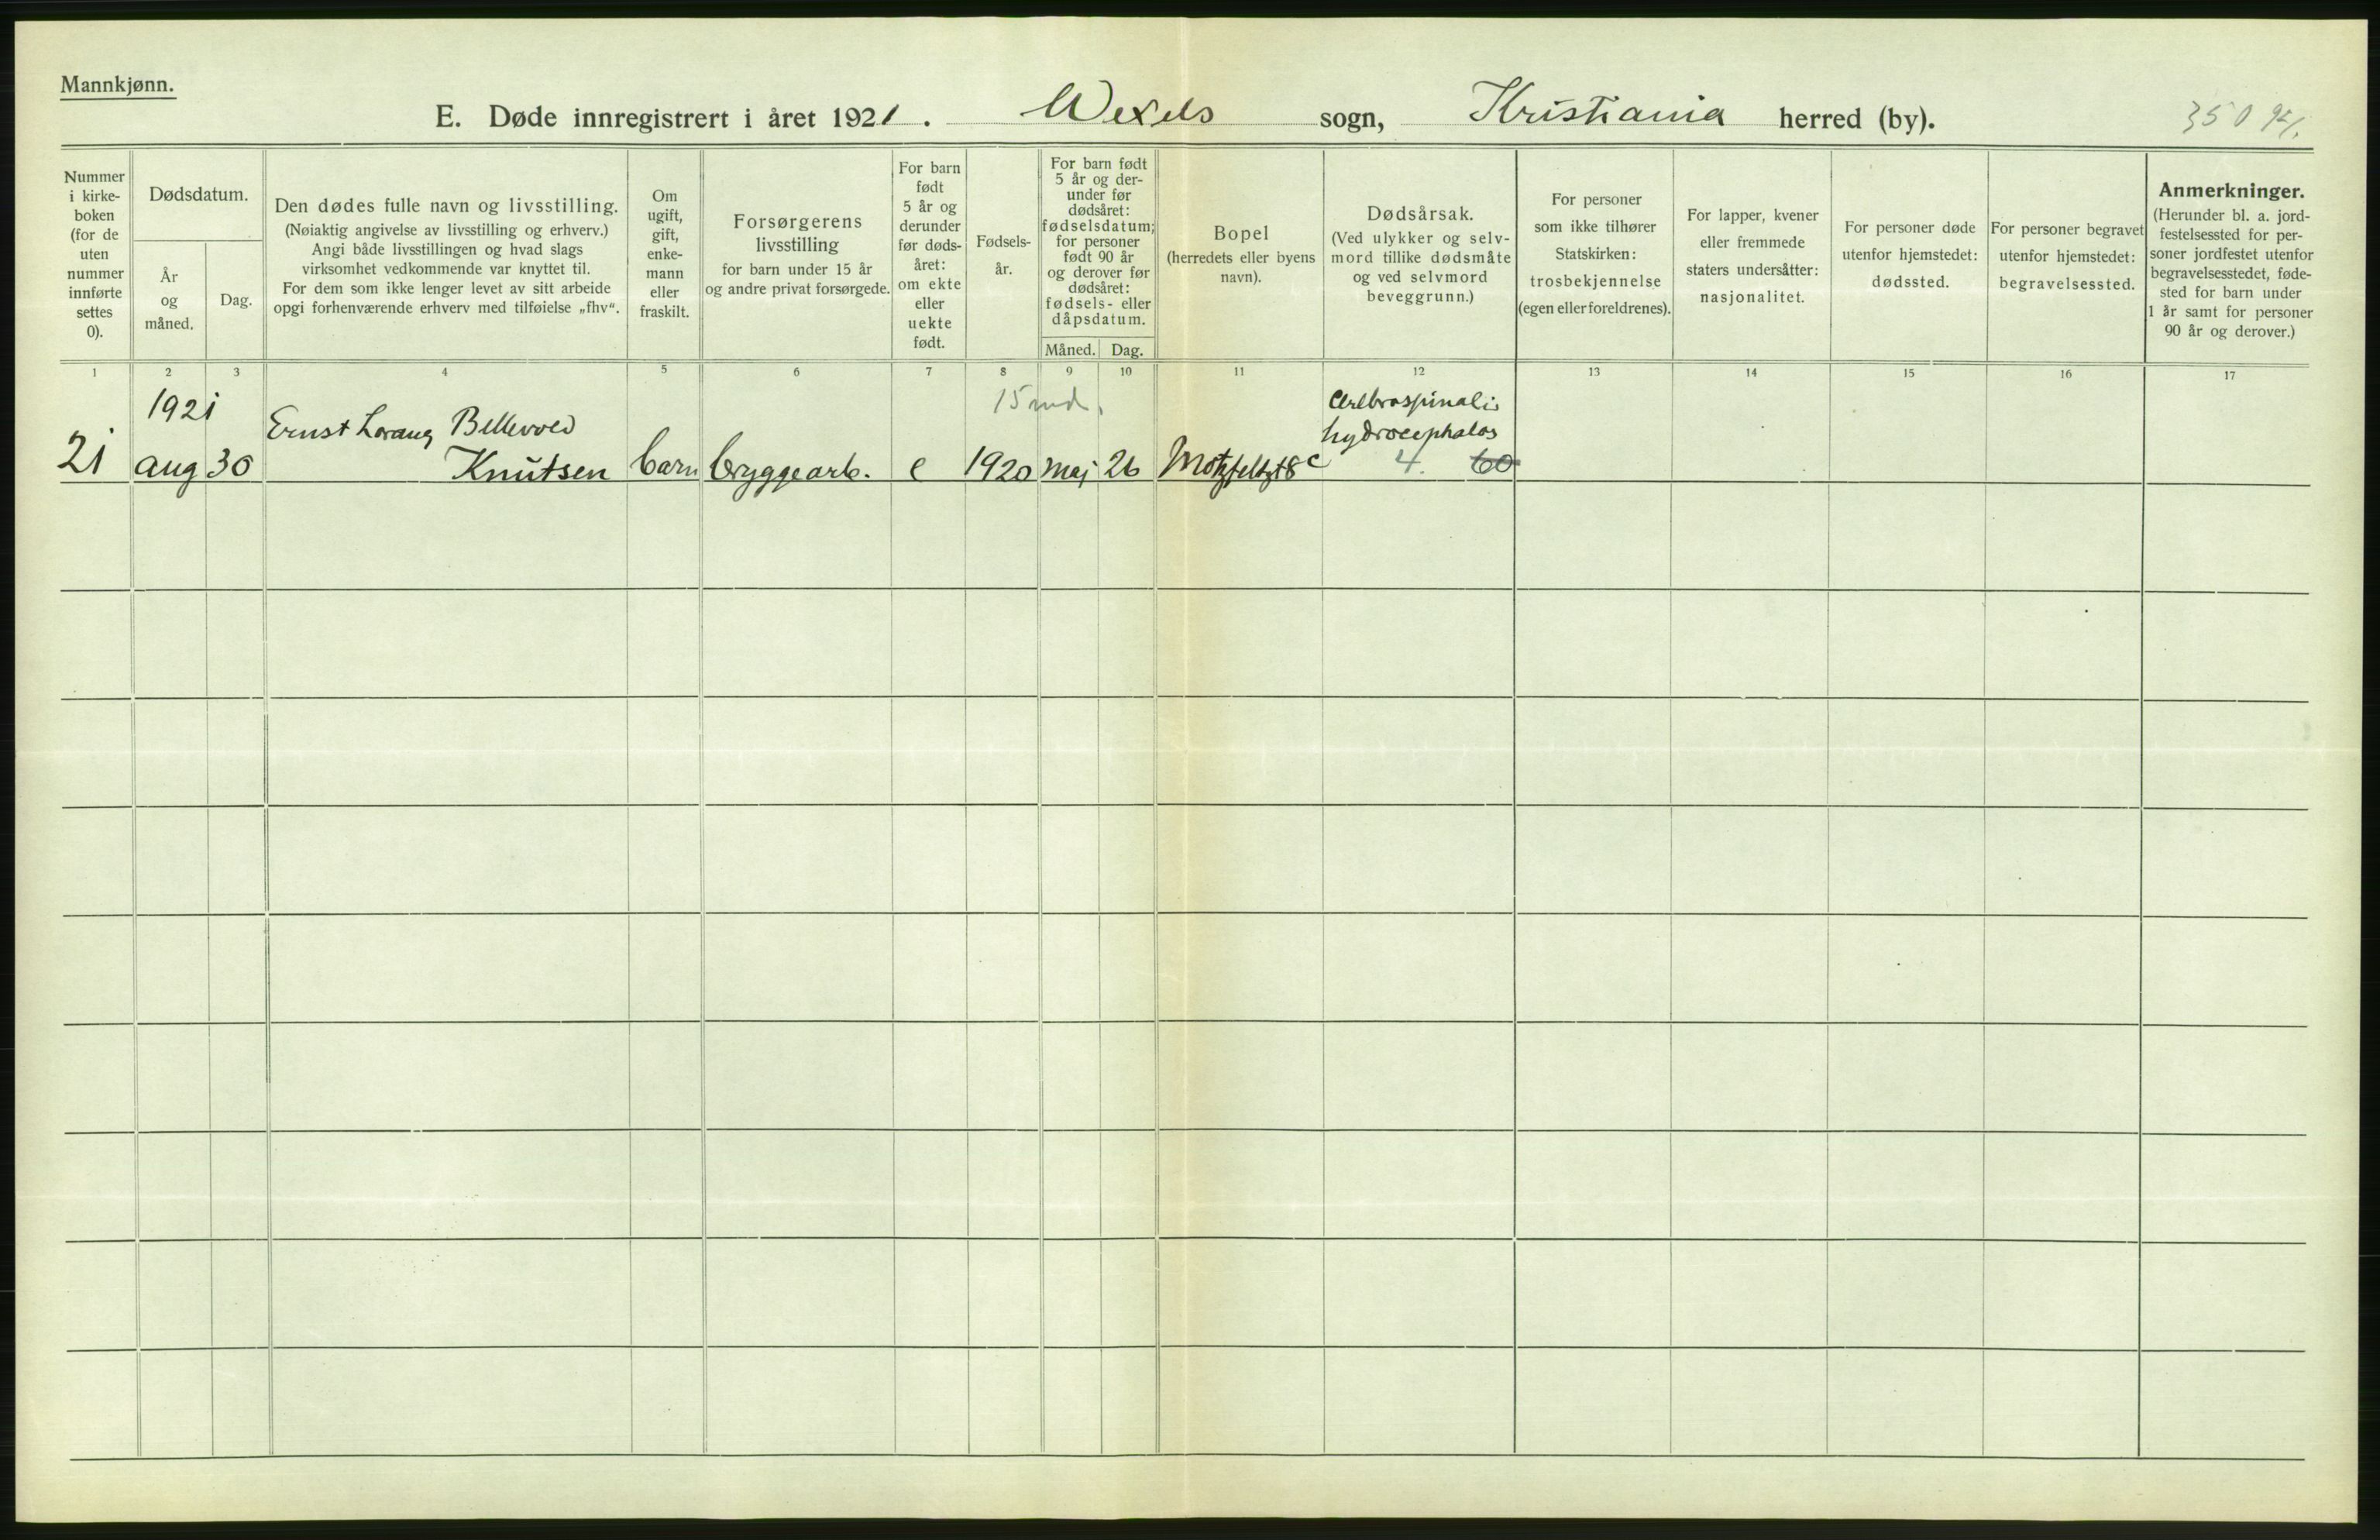 Mannkjønn.
E. Døde innregistrert i året 1921. Wexels sogn, Kristiania herred (by).
Nummer
i kirke-
boken
(for de
uten
nummer
innførte
settes
0).
Dødsdatum.
År
og
måned.
Dag.
Den dødes fulle navn og livsstilling.
(Nøiaktig angivelse av livsstilling og erhverv.)
Angi både livsstillingen og hvad slags
virksomhet vedkommende var knyttet til.
For dem som ikke lenger levet av sitt arbeide
opgi forhenværende erhverv med tilføielse „fhv“.
Om
ugift,
gift,
enke-
mann
eller
fraskilt.
Forsørgerens
livsstilling
for barn under 15 år
og andre privat forsørgede.
For barn
født
5 år og
derunder
før døds-
året:
om ekte
eller
uekte
født.
Fødsels-
år.
For barn født
5 år og der-
under før
dødsåret:
fødselsdatum;
for personer
født 90 år
og derover før
dødsåret:
fødsels- eller
dåpsdatum.
Måned.
Dag.
Bopel
(herredets eller byens
navn).
Dødsårsak.
(Ved ulykker og selv-
mord tillike dødsmåte
og ved selvmord
beveggrunn.)
For personer
som ikke tilhører
Statskirken:
trosbekjennelse
(egen eller foreldrenes).
For lapper, kvener
eller fremmede
staters undersåtter:
nasjonalitet.
For personer døde
utenfor hjemstedet:
dødssted.
For personer begravet
utenfor hjemstedet:
begravelsessted.
Anmerkninger.
(Herunder bl. a. jord-
festelsessted for per-
soner jordfestet utenfor
begravelsesstedet, føde-
sted for barn under
1 år samt for personer
90 år og derover.)
1 2 3 4 5 6 7 8 9 10 11 12 13 14 15 16 17
1921 15 md. Cerebrospinalis
Ernst Lorang Bellevold hydrocephalos
21 aug 30 Knutsen barn bryggearb. e 1920 maj 26 Motzfeldtgt 8 c 4. 60